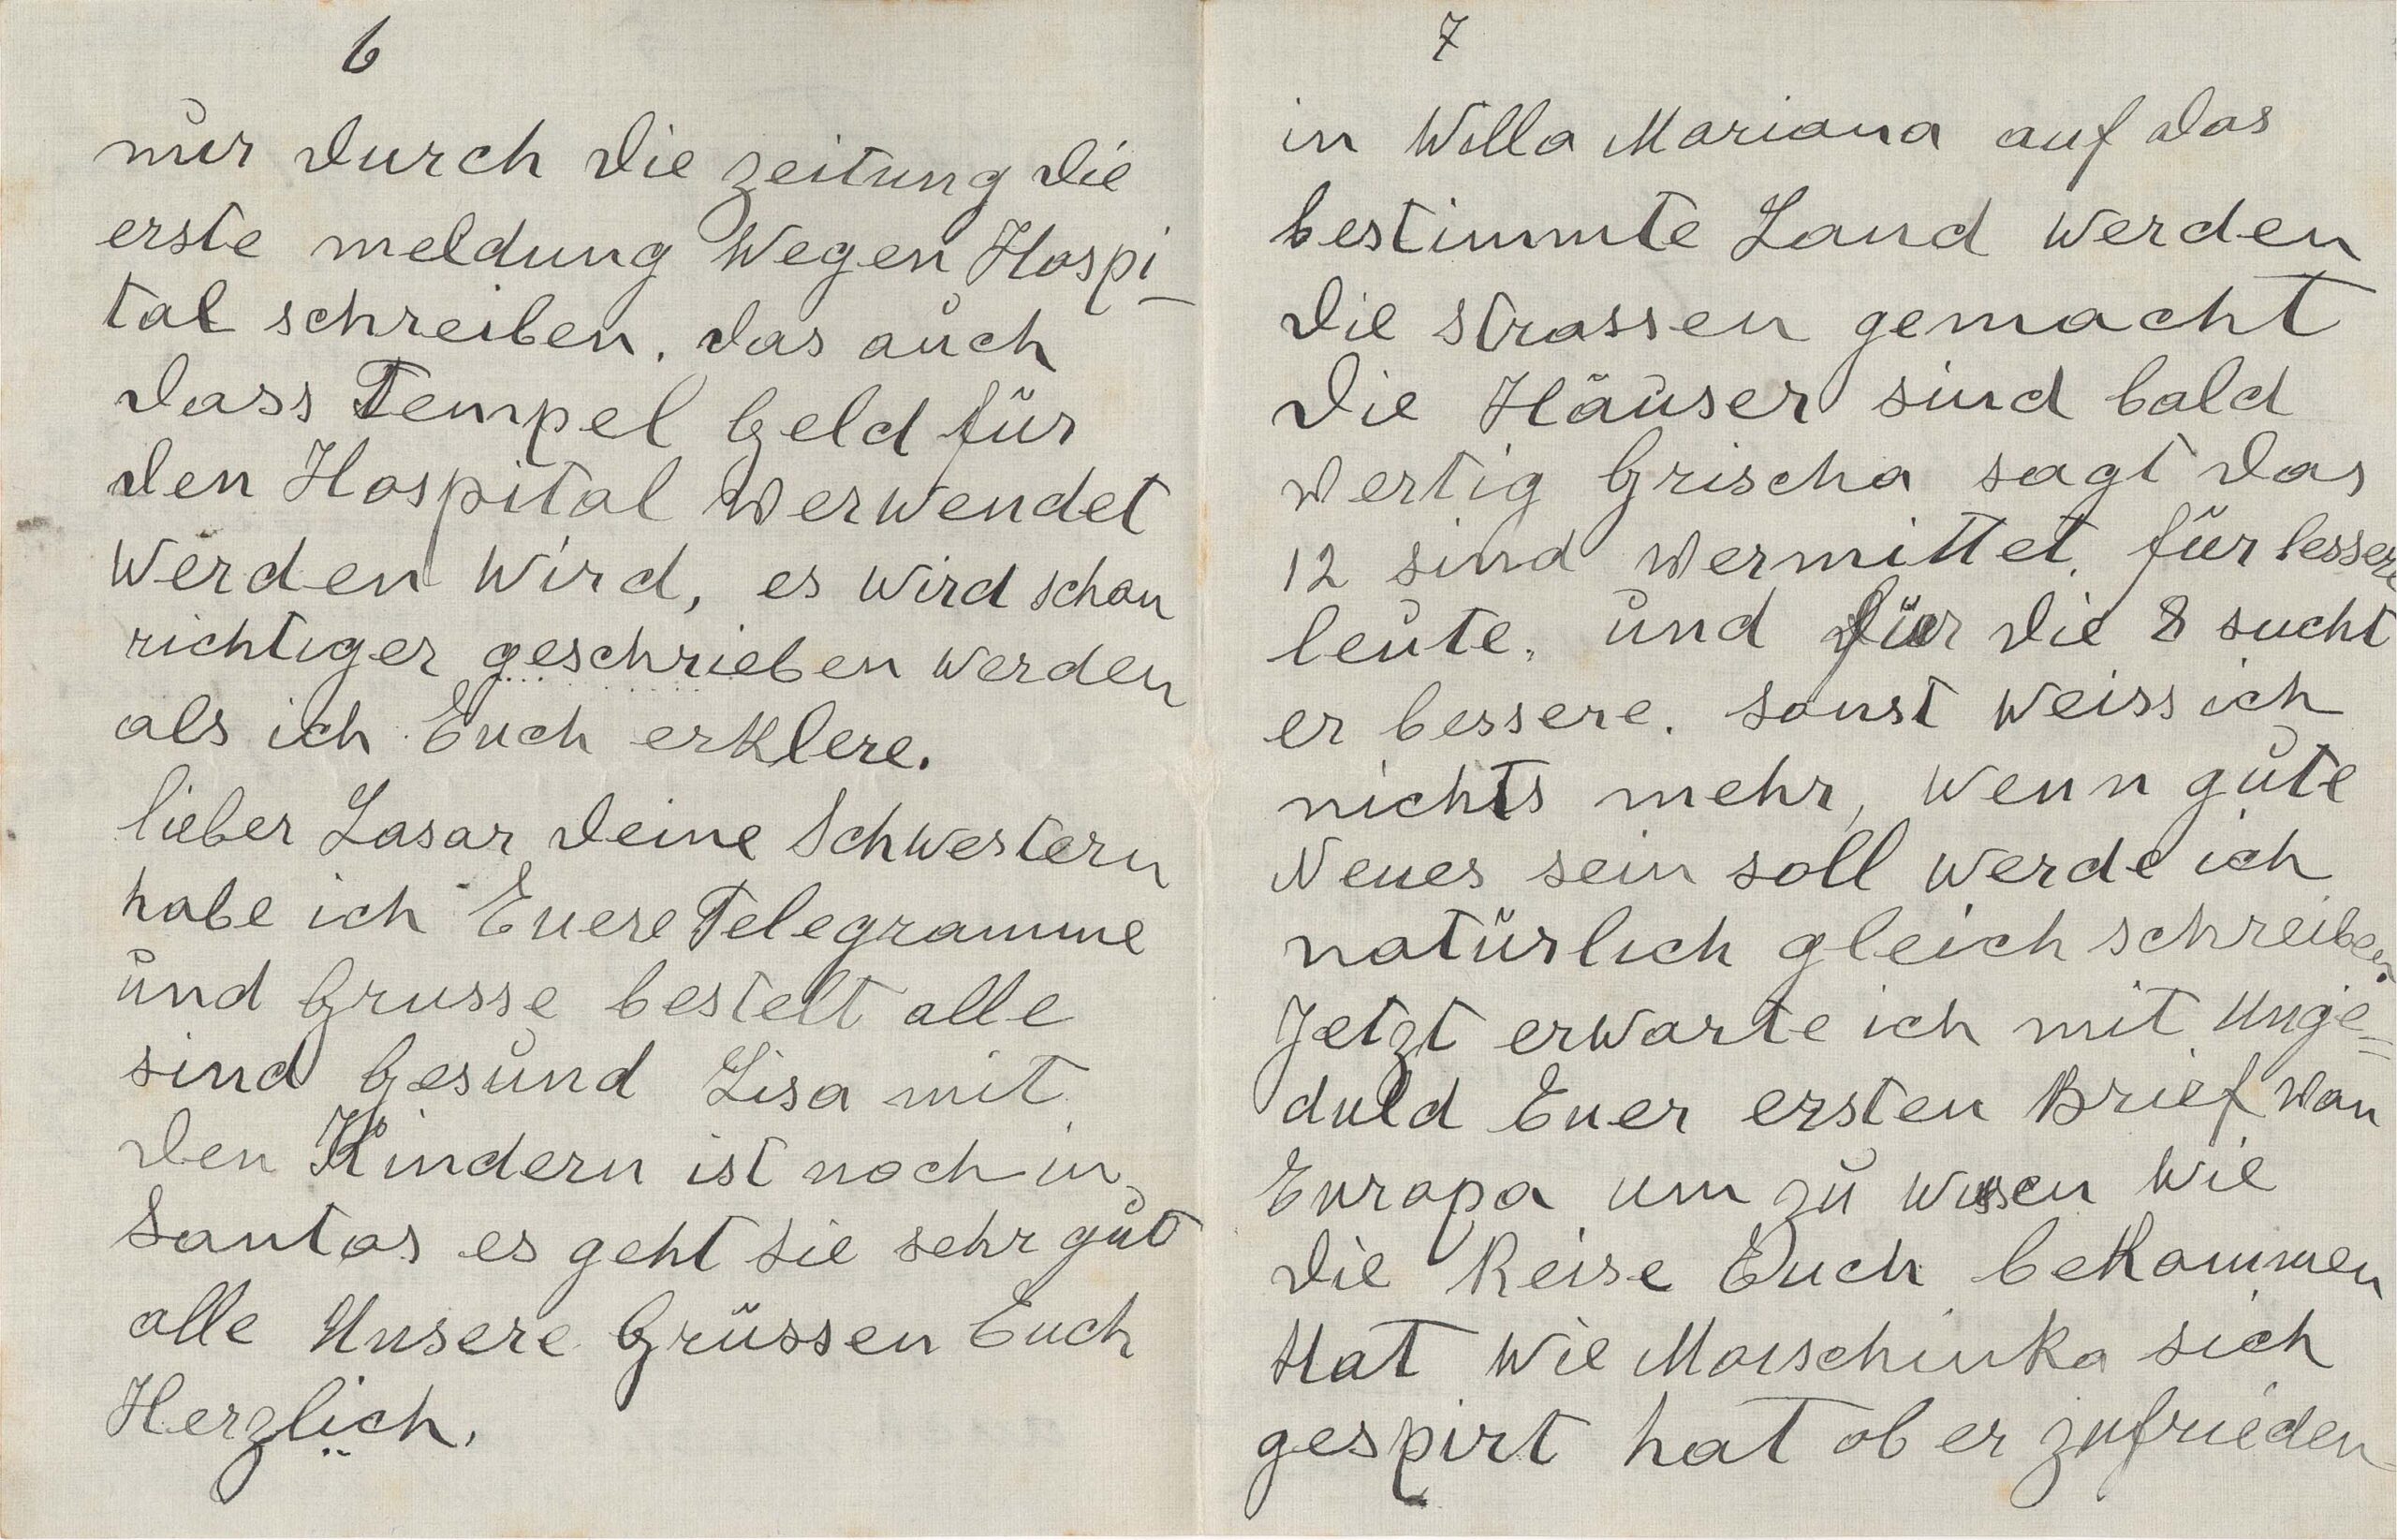 6
nur durch die zeitung die
erste meldung wegen Hospi-
tal schreiben. das auch
dass Tempel Geld für
den Hospital verwendet
werden wird, es wird schon
richtiger geschrieben werden
als ich Euch erklere.
lieber Lasar deine Schwestern
habe ich Euere Telegramme
und Grusse bestelt alle
sind Gesund Lisa mit
den Kindern ist noch in
Santos es geht sie sehr gut
alle Unsere Grüssen Euch
Herzlich.
7
in Willa Mariana auf das
bestimmte Land werden
die strassen gemacht
die Häuser sind bald
vertig Grischa sagt das
12 sind vermittet. für bessere
leute. und für die 8 sucht
er bessere. sonst weiss ich
nichts mehr, wenn gute
Neues sein soll werde ich
natürlich gleich schreiben.
Jetzt erwarte ich mit Unge=
duld Euer ersten Brief van
Europa um zu wissen wie
die Reise Euch bekommen
Hat wie Morschinka sich
gespirt hat ob er zufrieden